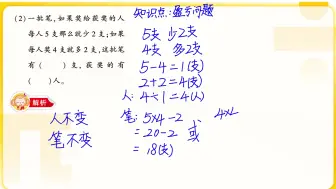 (2)一批笔,如果奖给获奖的人
每人5支那么就少2支;如果
每人奖4支就多2支,这批笔
有( )支,获奖的有
( )人。
解析
人不变
笔不变
知识点:盈亏问题
5支 少2支
4支 多2支
5-4=1(支)
2+2=4(支)
人:4÷1=4(人)
笔:5×4-2
=20-2 或
=18(支)
4×4